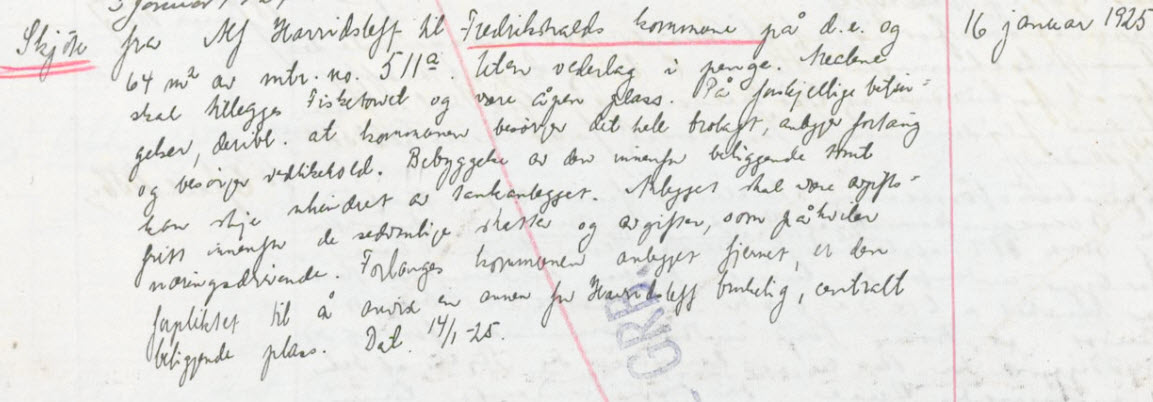 Skjöte fra Alf Harridsleff til Fredrikshalds kommune på d.e. og 16 januar 1925
64 m² av mtr. no. 511a. Uten vederlag i penge. Arealene
skal tillegges Fisketorvet og være åpen plass. På forskjellige betin-
gelser, deribl. at kommunen besörger det hele brolagt, anlegger fortaug
og besörger vedlikehold. Bebyggelse av den innenfor beliggende tomt
kan skje uhindret av tankanlegget. Anlegget skal være avgifts-
fritt innenfor de sedvanlige skatter og avgifter, som påhviler
næringsdrivende. Forlanges kommunen anlegget fjernet, er den
forpliktet til å anvise en annen for Harridsleff brukelig, centralt
beliggende plass. Dat. 14/1-25.
GRB.